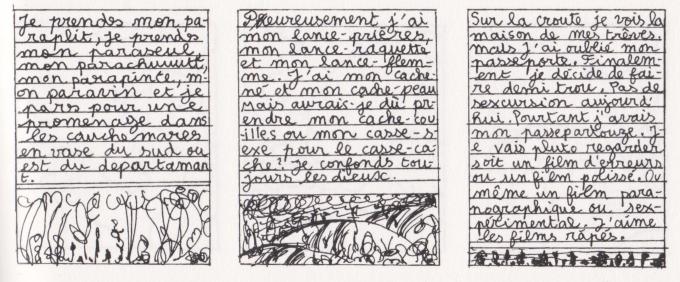 Je prendes mon pa-
raplit, je prends
mon paraseul,
mon parachuuutt,
mon parapinte, m'
on paravin et je
pars pour un e
promenage dans
les cauche mares
en vase du sud ou
est du departaman
t.
Pheureusement j'ai
mon lance-prières,
mon lance-raquette
et mon lance-flem-
me. J'ai mon cache-
né et mon cache-peau
Mais aurais-je dû pr-
endre mon cache-cou-
illes ou mon casse-s-
exe pour le casse-ca-
che? Je confonds tou-
jours les dieux.
Sur la croute je vois la
maison de mes trêves.
Mais J'ai oublié mon
passe porte. Finalem-
ent je décide de fai-
re demi trou. Pas de
sexcursion aujourd'
hui. Pourtant j'avais
mon passepartouze. J-
e vais pluto regarder
soit un film d'erreurs
ou un film polisse. Ou
même un film para-
nographique ou sex-
périmental. J'aime
les films râpés.